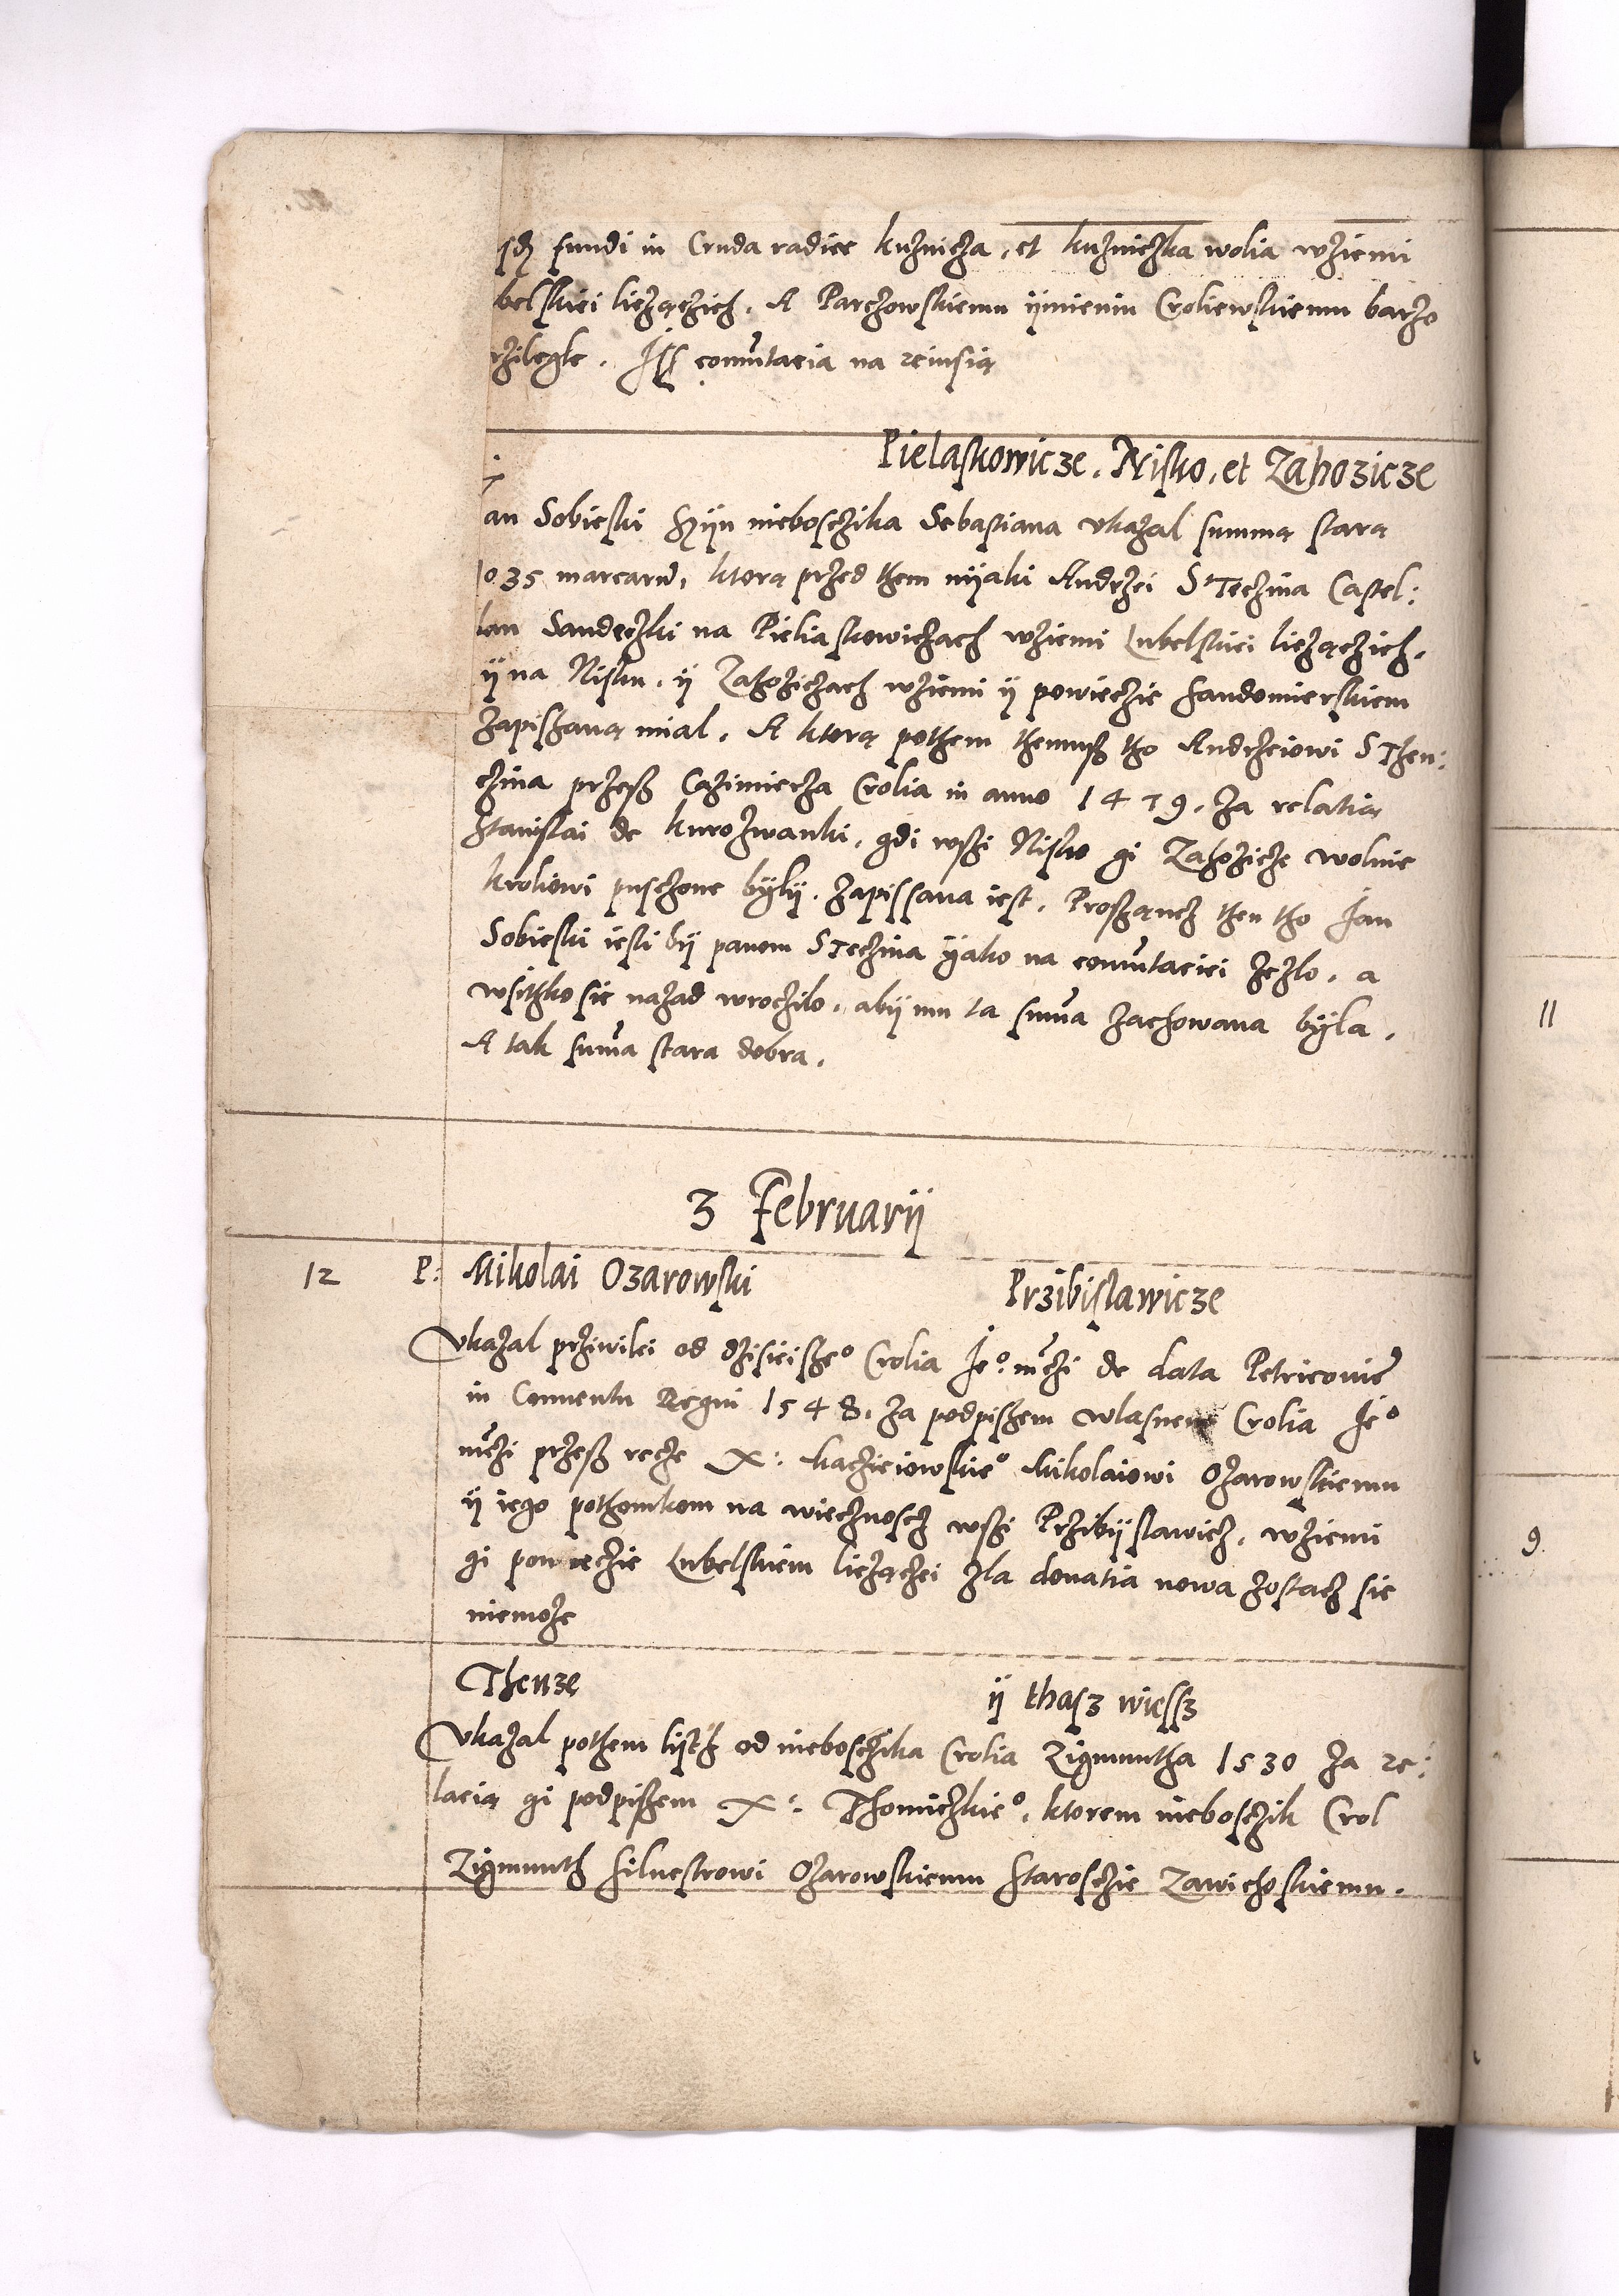 fundi in Cruda radice kuznicza, et kuzniczka wolia wziemi
belskiei liezączich. A Parczowskiemu ijmieniu Croliewskiemu barzo
rzilegle. Iss comutacia na reiusią
Pielaskowicze. Nisko. et Zahozicze
an Sobieski Szijn nieboszczika Sebastiana vkazal summą starą
035 marcaru, ktorą przed them nijaki Andrzei S Teczina Castel:
lan Sandeczki na Pieliaskowiczach wziemi Lubelskiei liezączich.
ij na Nisku. ij Zahoziczach wziemi ij powieczie sandomierskiem
zapiszaną mial. A ktorą pothem themuß tho Andrzeiowi S Then:
czina przeß Cazimierza Crolia in anno 1479. za relatią
Stanislai de kurozwanki. gdi wszi Nisko gi Zahozicze wolnie
kroliowi puschone bijlij. zapissana iest. Proszącz then tho Jan
Sobieski iesli bij panom S Teczina ijako na comutaciei zezlo. a
wsithko sie nazad wroczilo. abij mu ta suma zachowana bijla.
A tak suma stara dobra.
3 Februarij
12 P: Mikolai Ozarowski Przibislawicze
Vkazal przivilei od dzisieisze° Crolia Je°. mczi de data Petricovie
in Conventu Regni 1548. za podpiszem wlasnem Crolia Je°
mczi przeß recze X: Maczieiowskie° Mikolaiowi Ozarowskiemu
ij iego pothomkom na wiecznoscz wszi Przibijslawicz. wziemi
gi powieczie Lubelskiem liezączei zla donatia nowa zostacz sie
niemoze
Thenze ij thasz wiessz
Vkazal pothem lijsth od nieboszczika Crolia Zigmuntha 1530 za re:
lacią gi podpiszem X: Thomiczkie°. ktorem nieboszczik Crol
Zigmunth Silvestrowi Ozarowskiemu Staroszczie Zawichoskiemu.
11
9.